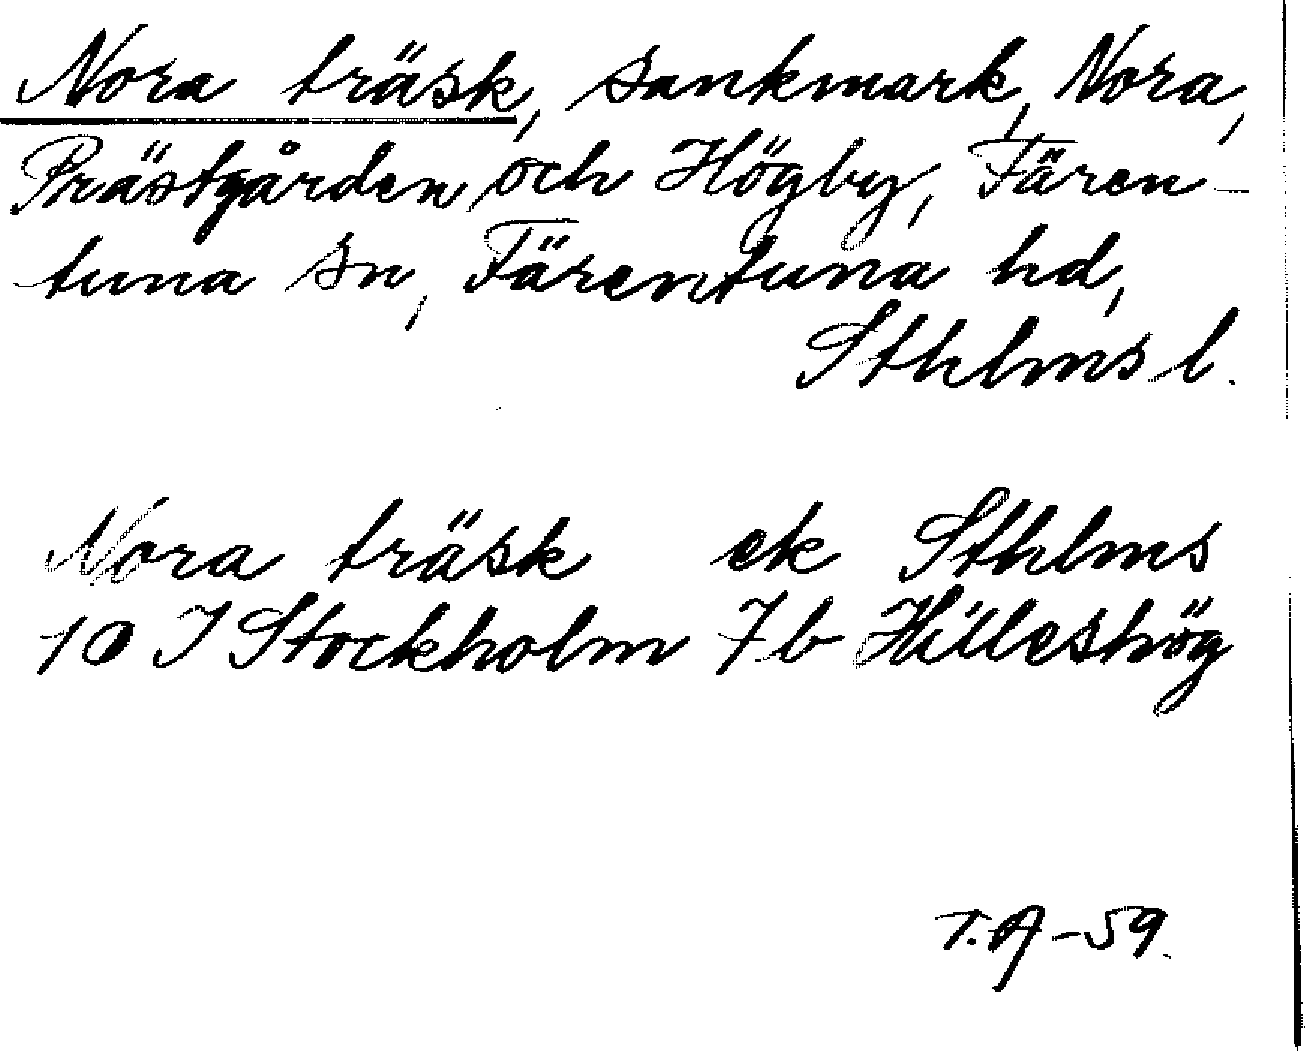 Nora träsk, sankmark, Nora,
Prästgården och Högby, Fären-
tuna sn, Färentuna hd,
Sthlms l.
Nora träsk ek Sthlms
10 I Stockholm 7b Hilleshög
T.A-59.